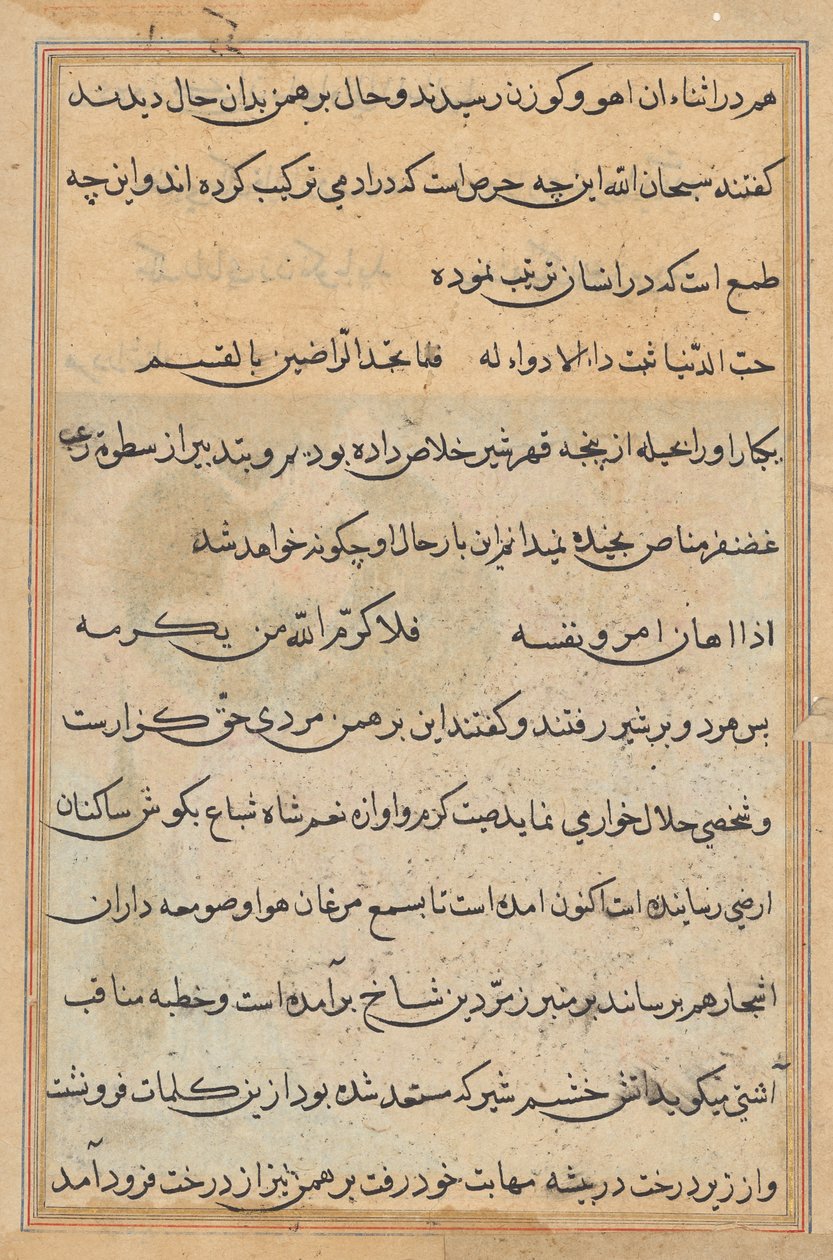 هم در اثناء ان اهو و کوزن رسیدند و حال برهمن بدان حال دیدند
کفتند سبحان الله این چه حرص است که در ادمی ترکیب کرده اند و این چه
طمع است که در انسان ترتیب نموده
حبّ الدّنیا ثبت داء لا دواء له فلما تجّد الرّاضین بالقسم
یکبار او را بحیله از پنجه قهر شیر خلاص داده بودیم و بتدبیر از سطوة رعب
غضنفر مناص بخیده نمیدانم این بار حال او چکونه خواهد شد
اذا اهان امرو نفسه فلا کرّم الله من یکرمه
بس هرد و بر شیر رفتند و کفتند این برهمن مردی حقّ کزارست
و شخصی حلال خوار می نماید صیت کرم و اوازه نعم شاه شباع بکوش ساکنان
ارضی رسانیده است اکنون امده است تا بسمع مرغان هوا و صومعه داران
اشجار هم برساند بر منبر زمرّدین شاخ برآمده است و خطبه مناقب
آشتی میکوید اتش خشم شیر که مستعد شده بود ازین کلمات فرونشت
و از زیر درخت در بیشه مهابت خود رفت برهمن نیز از درخت فرود آمد